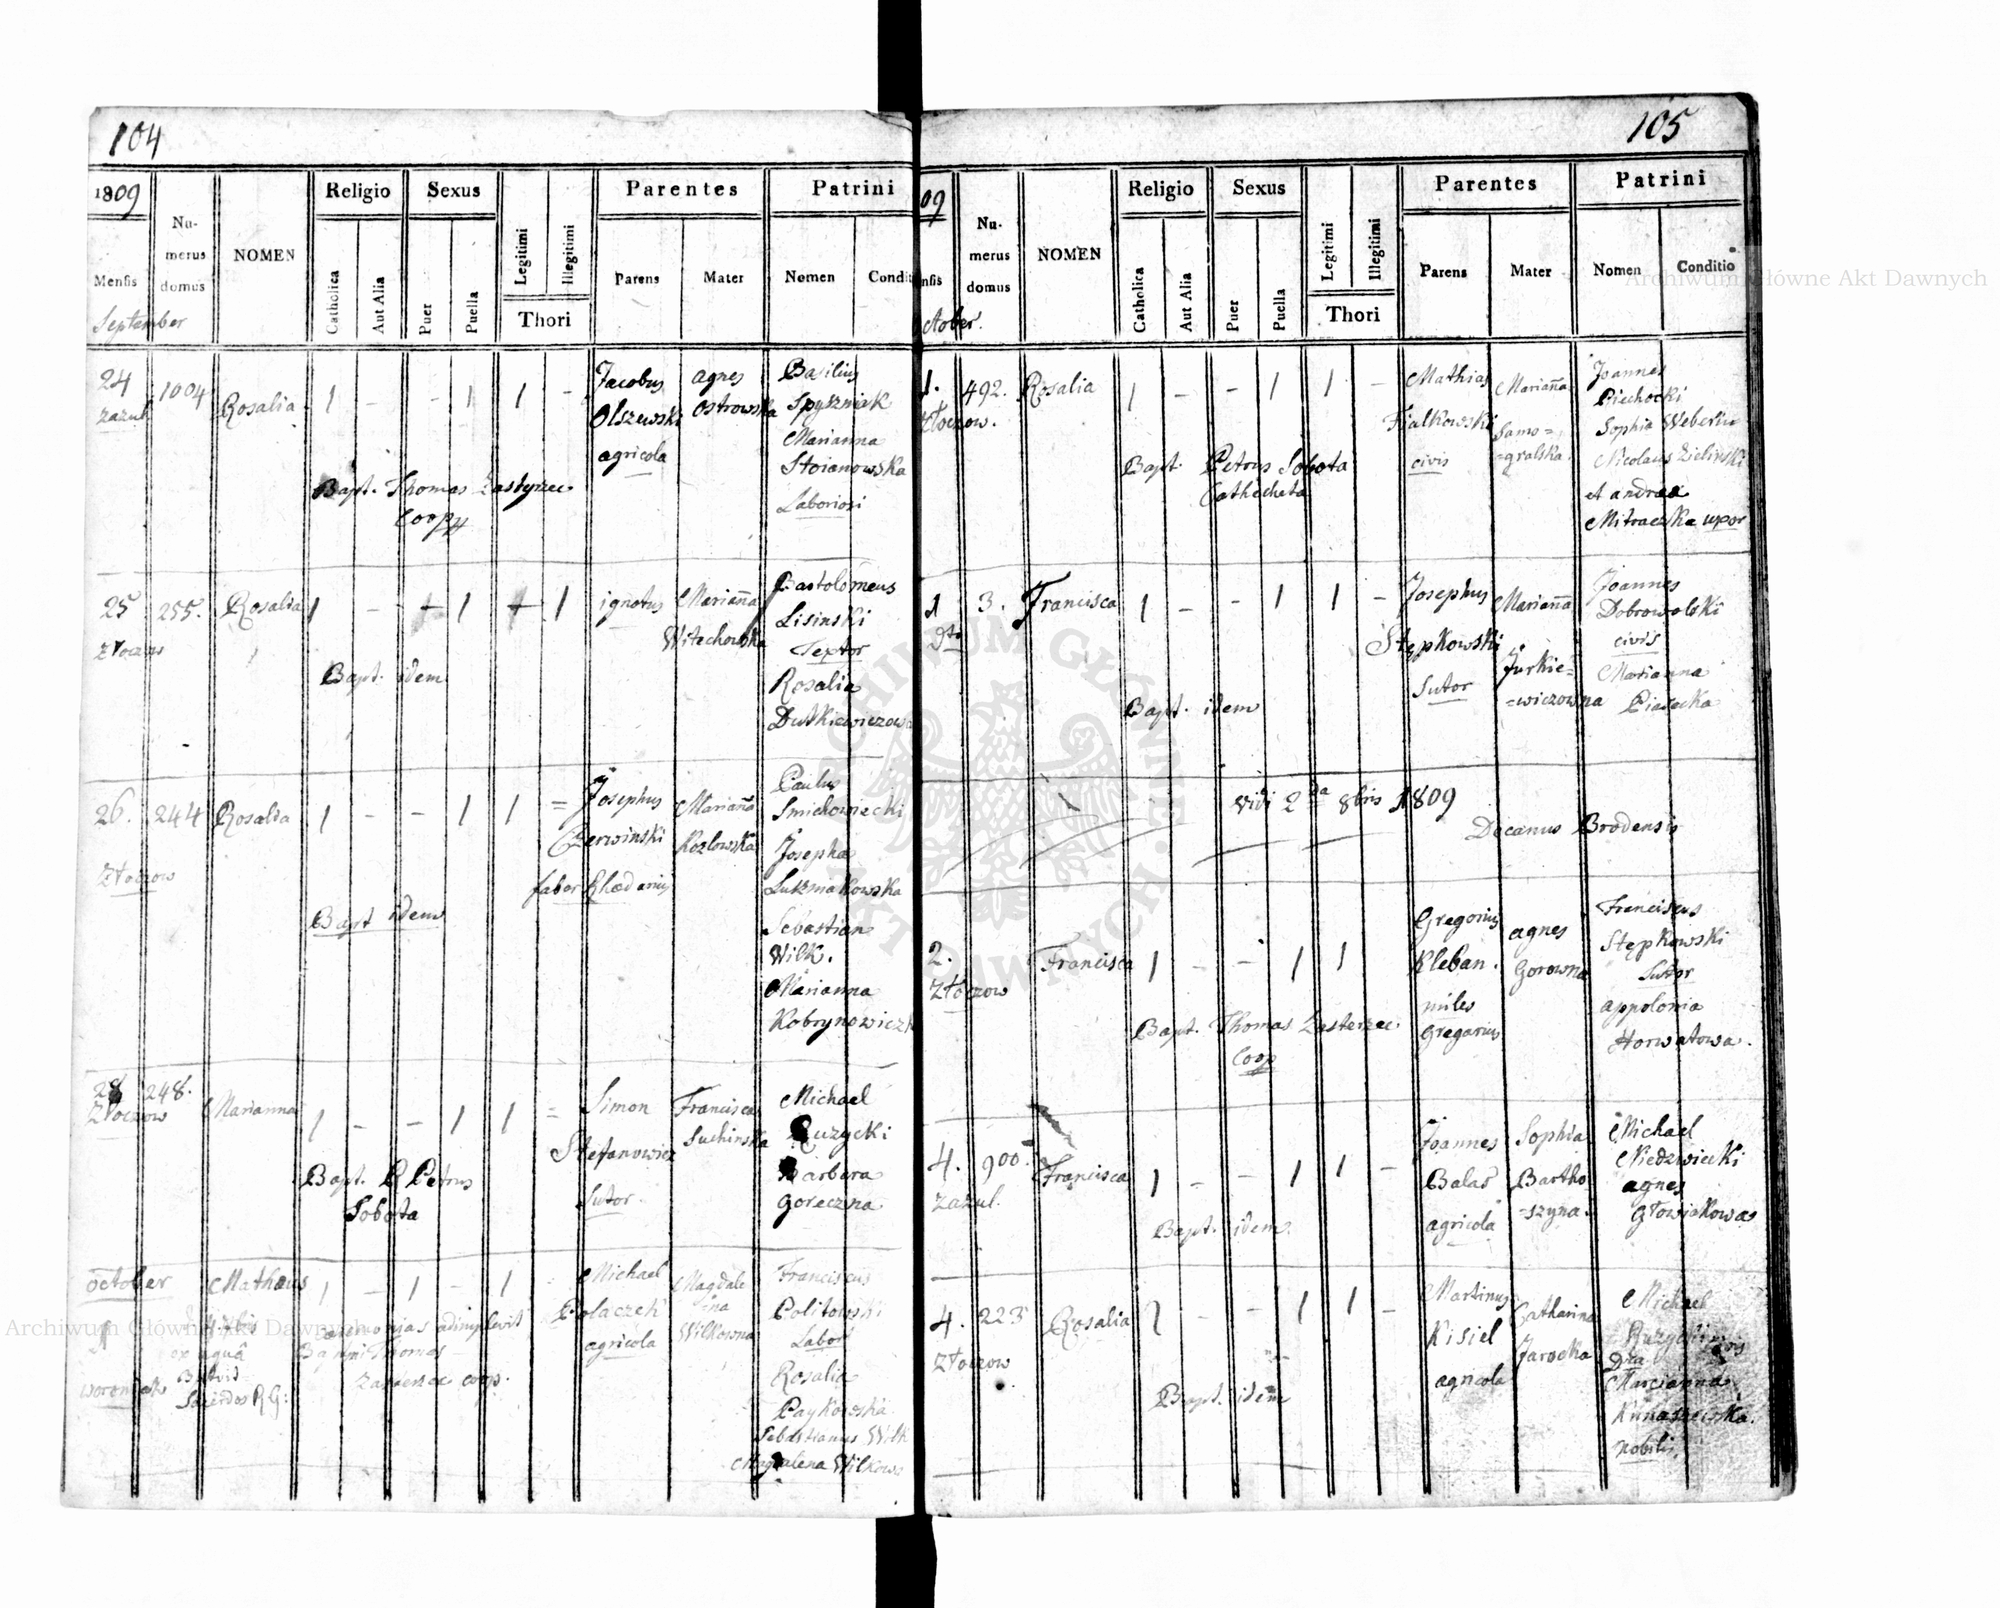 104
1809
Mensis
September
Nu-
merus
domus
NOMEN
Religio
Catholica
Aut Alia
Sexus
Puer
Puella
Legitimi
Illegitimi
Thori
Parentes
Parens
Mater
Patrini
Nomen
Conditi
24
Zazul
1004
Rosalia
Jacobus
Olszewski
agricola
agnes
Ostrowska
Basilius
Spyszniak
Marianna
Stoianowska
Laboriosi
Bapt. Thomas Zasterzec
Coop
25
Złoczow
255.
Rosalia
ignotus
Mariaña
Witechowska
Bartolomeus
Lisinski
Textor
Rosalia
Dutkiewiczowa
Bapt. idem
26.
Złoczow
244
Rosalia
Josephus
Czerwinski
faber Rhedarius
Mariaña
Kozlowska
Paulus
Smichowiecki
Josepha
Lukmakowska
Sebastian
Wilk.
Marianna
Kobrynowicz
Bapt idem
28
Złoczow
248.
Marianna
Simon
Stefanowicz
Sutor.
Francisca
Suchinska
Michael
Ruzycki
Barbara
Goreczna
Bapt. R Petrus
Sobota
october
1
Woroniaki
Mathaus
ex aquâ
Sacerdos R G:
Caeremonias adimplevit
Thomas
Zasterzec coop.
Michael
Polaczek
agricola
Magdale
ina
Wilkowna
Franciscus
Politowski
Labor
Rosalia
Paykowska
Sebastianus Wilk
Magdalena Wilkows
105
09
ensis
ctober.
Nu-
merus
domus
NOMEN
Religio
Catholica
Aut Alia
Sexus
Puer
Puella
Legitimi
Illegitimi
Thori
Parentes
Parens
Mater
Patrini
Nomen
Conditio
1.
Złoczow.
492.
Rosalia
Mathias
Fialkowski
civis
Mariaña
Samo=
=gralska.
Joannes
Piechocki
Sophia Weberin
Nicolaus Zielinski
et andrea
Mitraczka uxor
Bapt. Petrus Sobota
Cathecheta
1
dto
3.
Francisca
Josephus
Stępkowski
Sutor
Mariaña
Jurkie=
=wiczowna
Joannes
Dobrowolski
civis
Marianna
Piasecka
Bapt. idem
Vidi 2da 8bris 1809
Decanus Brodensis
2.
Złoczow
Francisca
Gregorius
Kleban.
miles
Gregarius
agnes
Gorowna
Franciscus
Stępkowski
Sutor
appolonia
Horwatowa.
Bapt. Thomas Zasterzec.
Coop
4.
Zazul.
900.
Francisca
Joannes
Balas
agricola
Sophia
Bartho
=szyna.
Michael
Niedzwiecki
agnes
Głowiakowa
Bapt. idem
4.
Złoczow
223
Rosalia
Martinus
Kisiel
agricola
Catharina
Jarocka
Michael
Ruzycki
Dna
Marianna
Kunaszewska.
nobilis
Bapt. idem
Archiwum Główne Akt Dawnych
Archiwum Główne Akt Dawnych
ARCHIWUM GŁÓWNE AKT DAWNYCH